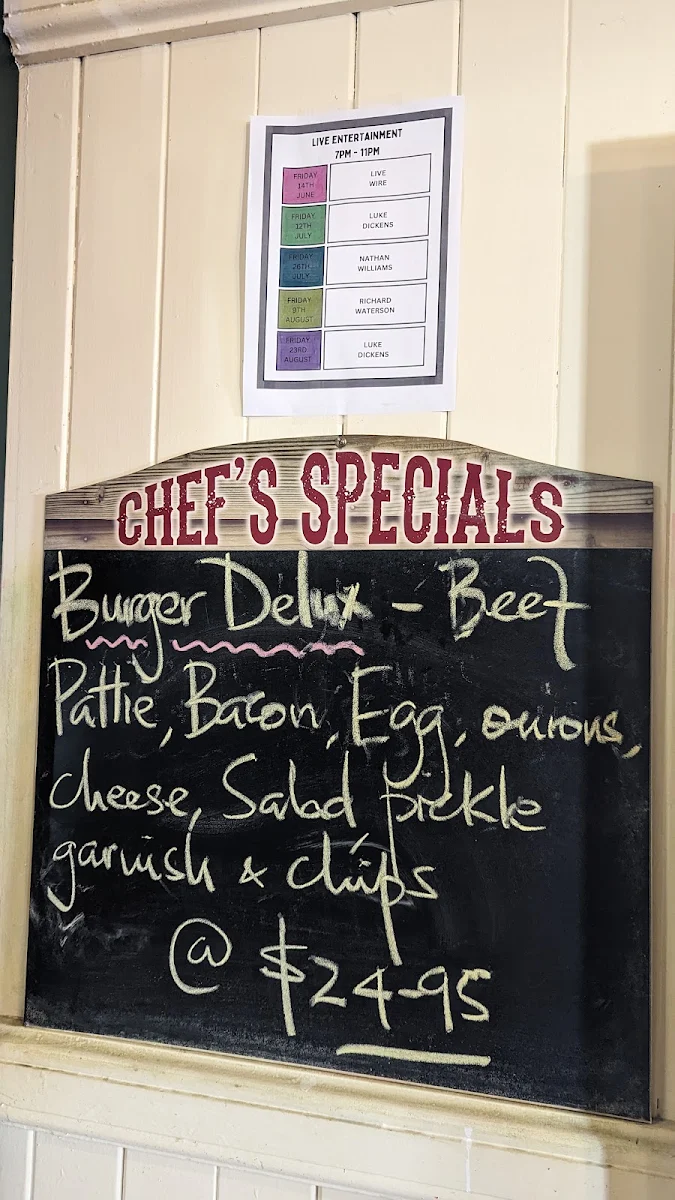 LIVE ENTERTAINMENT
7PM - 11PM
FRIDAY
14TH
JUNE
LIVE
WIRE
FRIDAY
12TH
JULY
LUKE
DICKENS
FRIDAY
26TH
JULY
NATHAN
WILLIAMS
FRIDAY
9TH
AUGUST
RICHARD
WATERSON
FRIDAY
23RD
AUGUST
LUKE
DICKENS
CHEF'S SPECIALS
Burger Delux - Beef
Pattie, Bacon, Egg, onions,
cheese, Salad, pickle
garnish & chips
@ $24-95